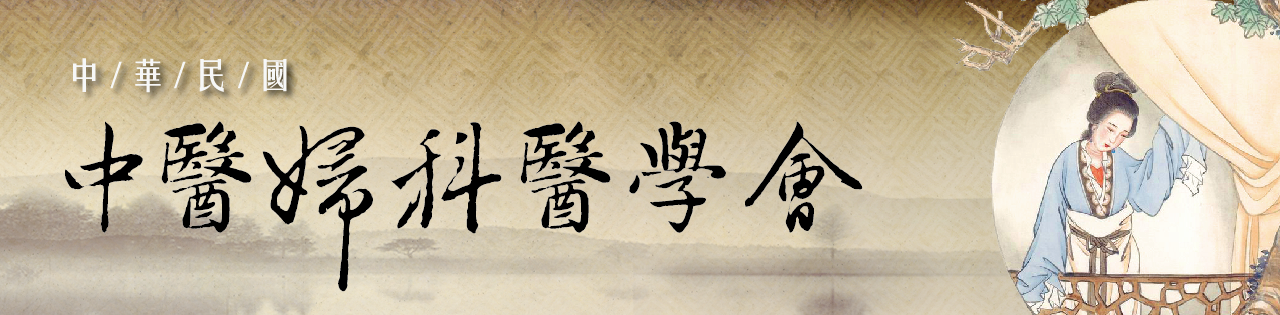 中/華/民/國
中醫婦科醫學會